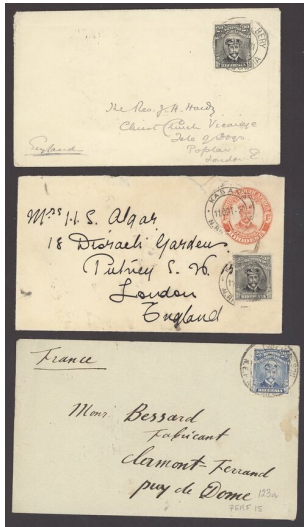 The Rev. J. A. Hardy
Christ Church Vicarage
Isle of Dogs
Poplar
London E
England
KASA
Mrs H. S. Algar
18 Disraeli Gardens
Putney S. W. 15
London
England
France
Monr. Bessard
Fabricant
clermont-Ferrand
puy de Dome
123a